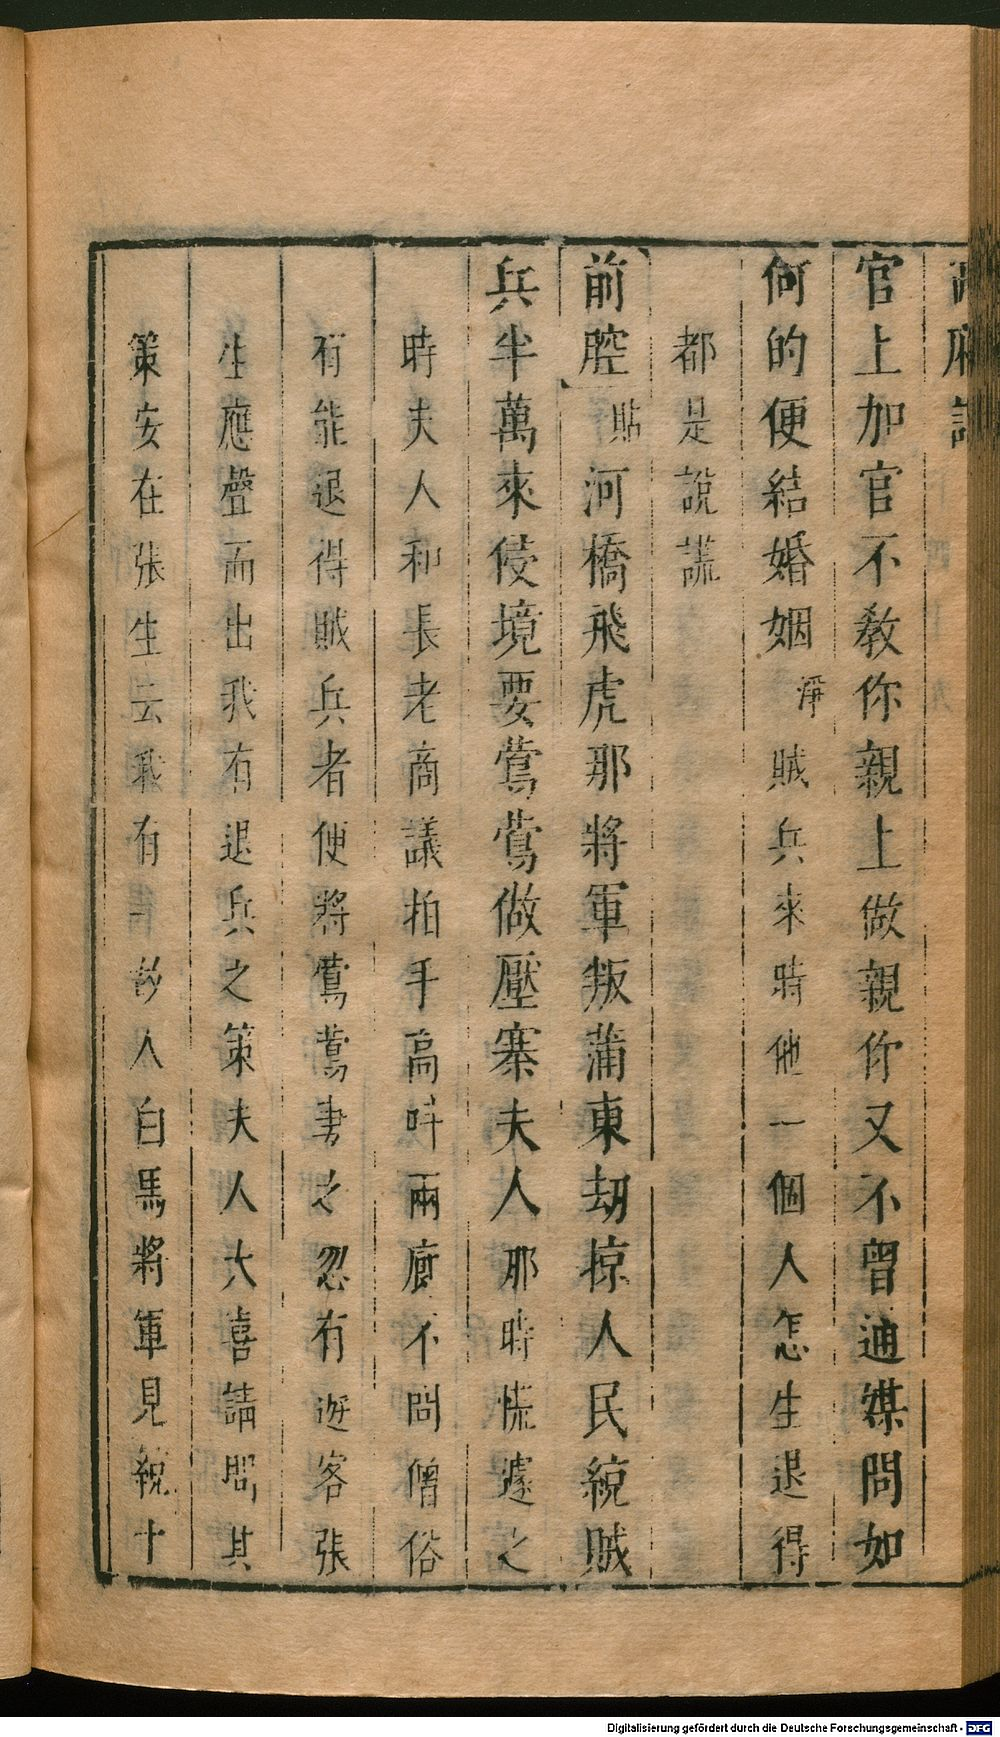 官上加官不教你親上做親你又不曾通媒問如
何的便結婚姻淨賊兵來時他一個人怎生退得
都是說謊
前腔貼河橋飛虎那將軍叛蒲東劫掠人民統賊
兵半萬來侵境要鶯鶯做壓寨夫人那時慌遽之
時夫人和長老商議拍手高呌兩廊不問僧俗
有能退得賊兵者便將鶯鶯妻之忽有遊客張
生應聲而出我有退兵之策夫人大喜請問其
策安在張生云我有故人白馬將軍見統十
Digitalisierung gefördert durch die Deutsche Forschungsgemeinschaft - DFG